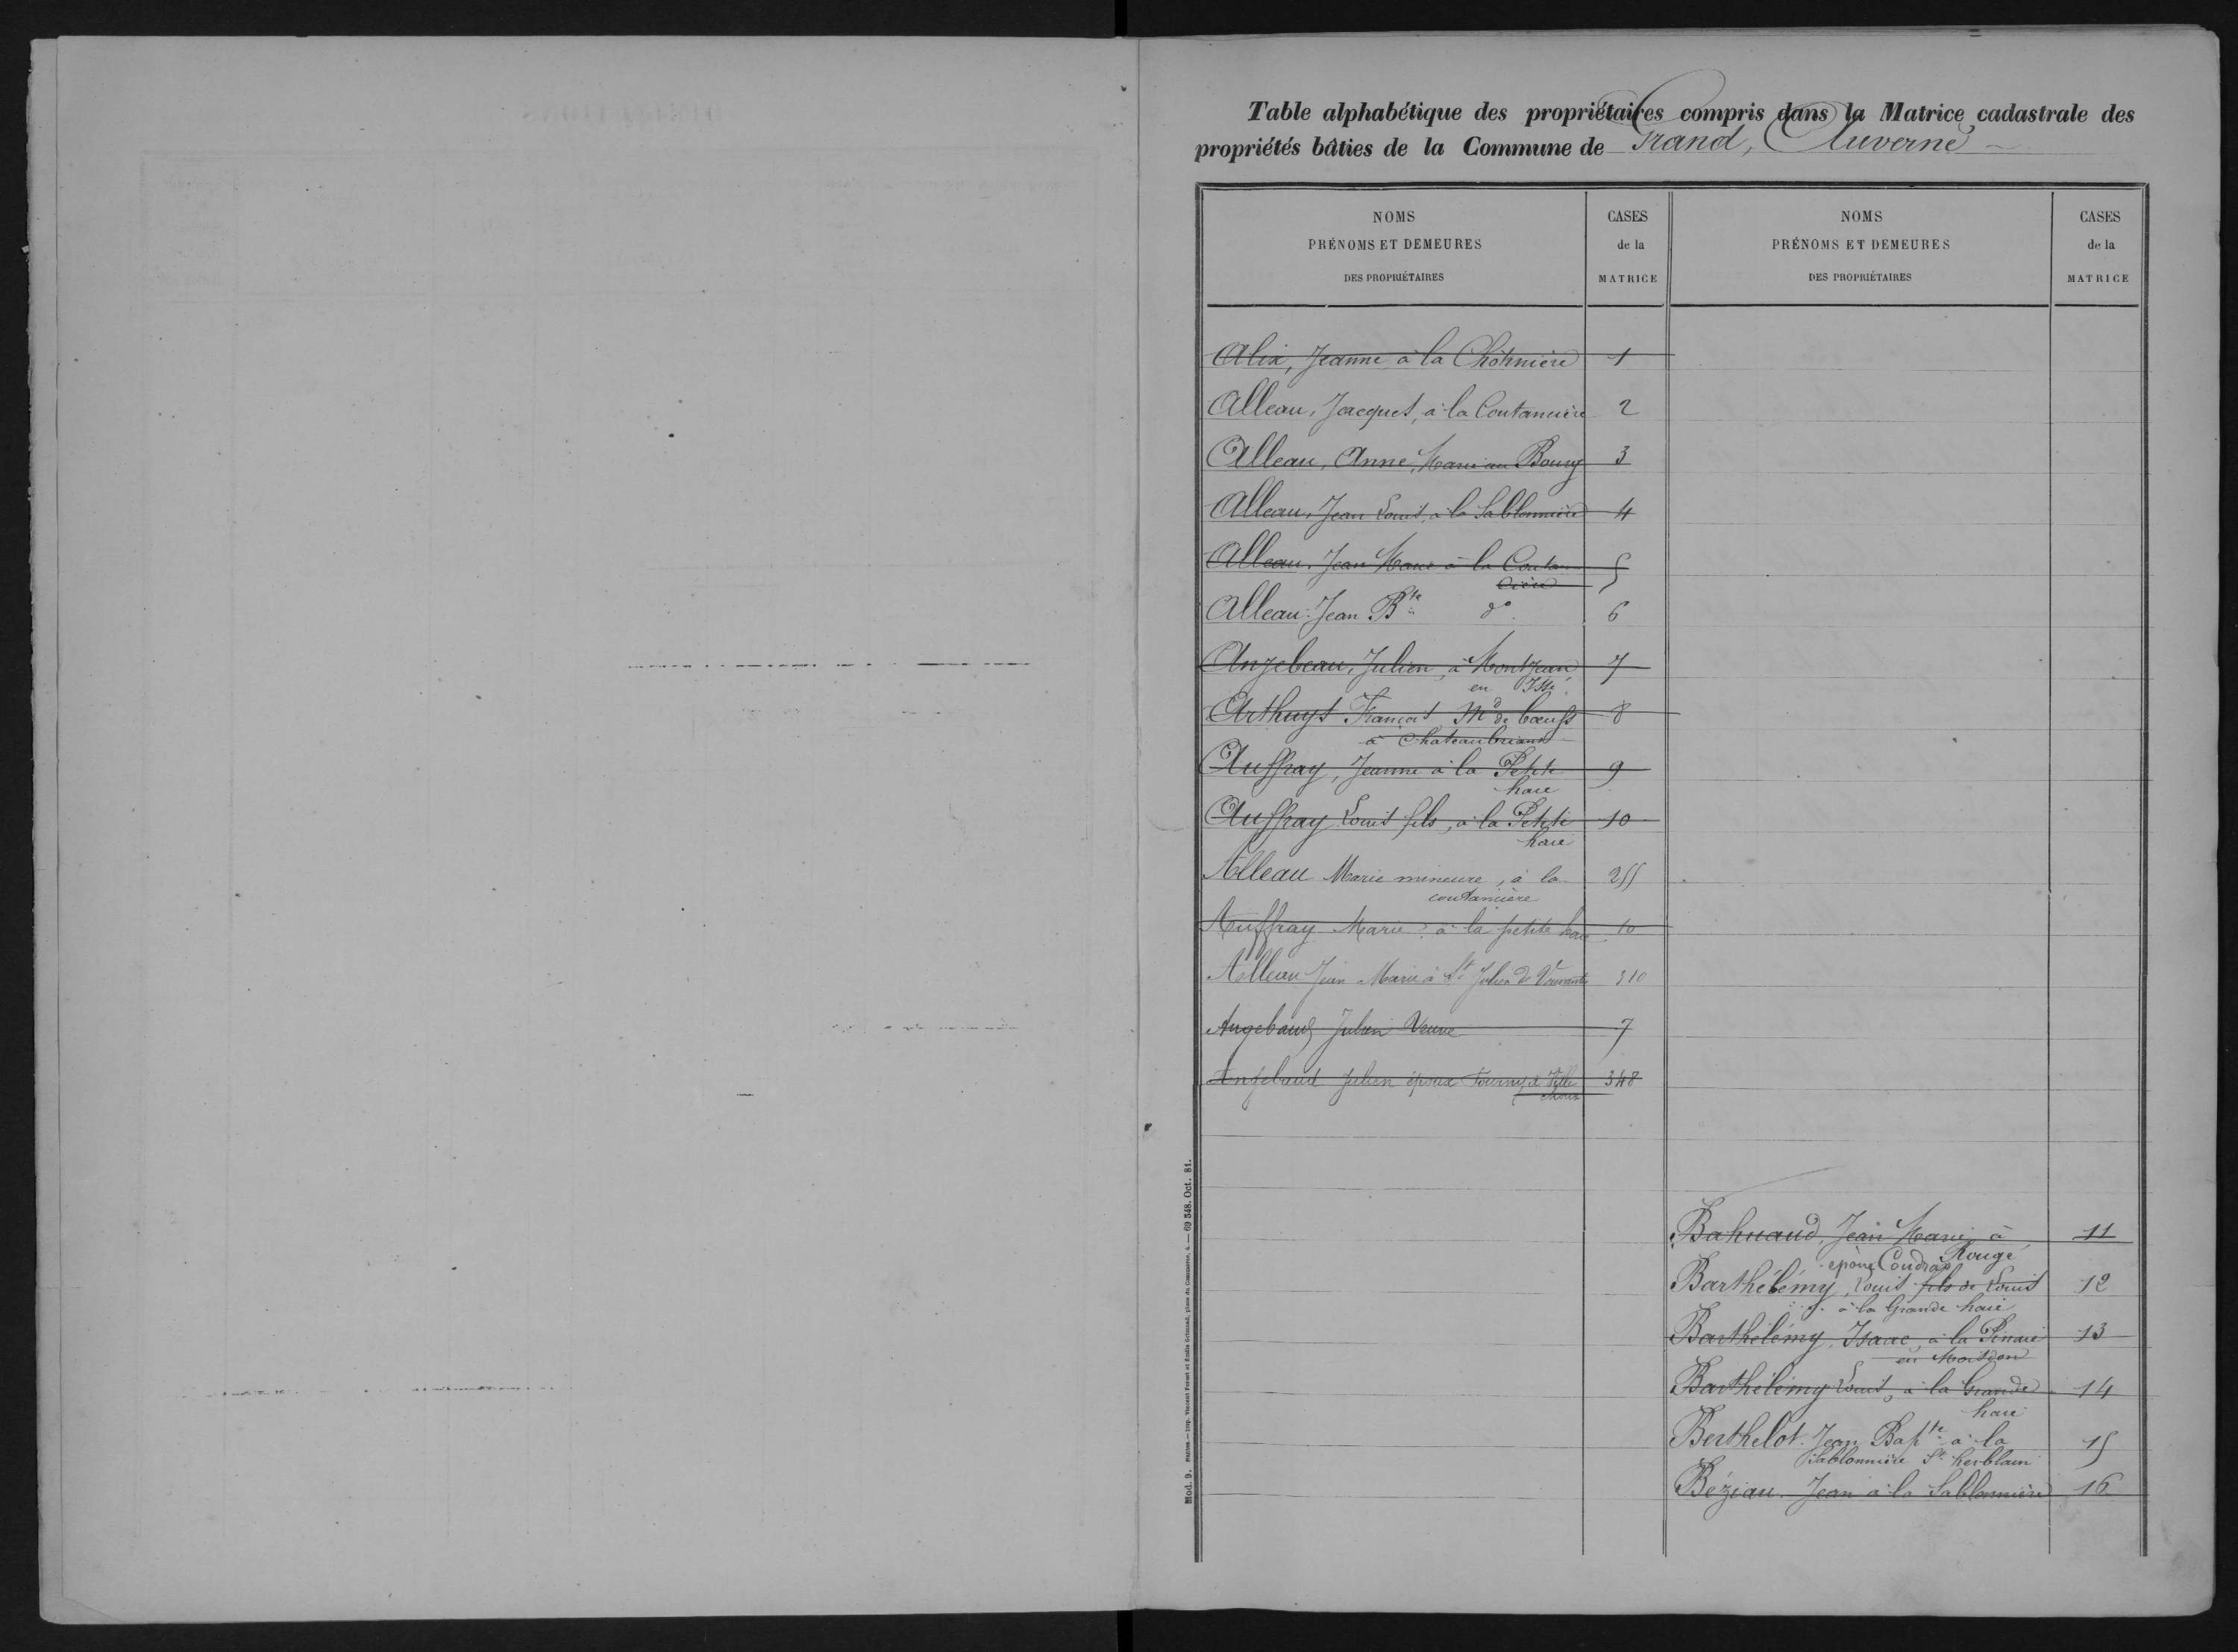 Table alphabétique des propriétaires compris dans la Matrice cadastrale des
propriétés bâties de la Commune de Grand, Auverné
NOMS
PRÉNOMS ET DEMEURES
DES PROPRIÉTAIRES
CASES
de la
MATRICE
NOMS
PRÉNOMS ET DEMEURES
DES PROPRIÉTAIRES
CASES
de la
MATRICE
Alix, Jeanne à la 1
Alleau, Jacques, à la Coutancière 2
Alleau, Anne, Marie au Bourg 3
Alleau, Jean Louis, à la Sablonnière 4
Alleau, Jean Marie à la Coutan
cière 5
Alleau Jean Bte do 6
Anjebeau, Julien, à Montjean 7
en Issé
Arthuys François Md de bœufs 8
à Chateaubriant
Auffray, Jeanne à la Petite 9
haie
Auffray Louis fils, à la Petite 10
haie
Alleau Marie mineure, à la 255
coutancière
Auffray Marie à la petite haie 10
Alleau Jean Marie à St Julien de Vouvantes 310
Angebaud Julien Veuve 7
Angebaud Julien époux à Ville 348
Mod. 9. Nantes. — Imp. Vincent Forest et Émile Grimaud, place du Commerce, 4. — 69 548. Oct. 81.
Bahuaud, Jean Marie, à 11
Rougé
époux Coudray
Barthélémy, Louis fils de Louis 12
à la Grande haie
Barthélémy, Isaac, à la 13
en Moisdon
Barthélémy Louis, à la Grande 14
haie
Berthelot Jean Bapte à la 15
Sablonnière St herblain
Béziau Jean à la Sablonnière 16